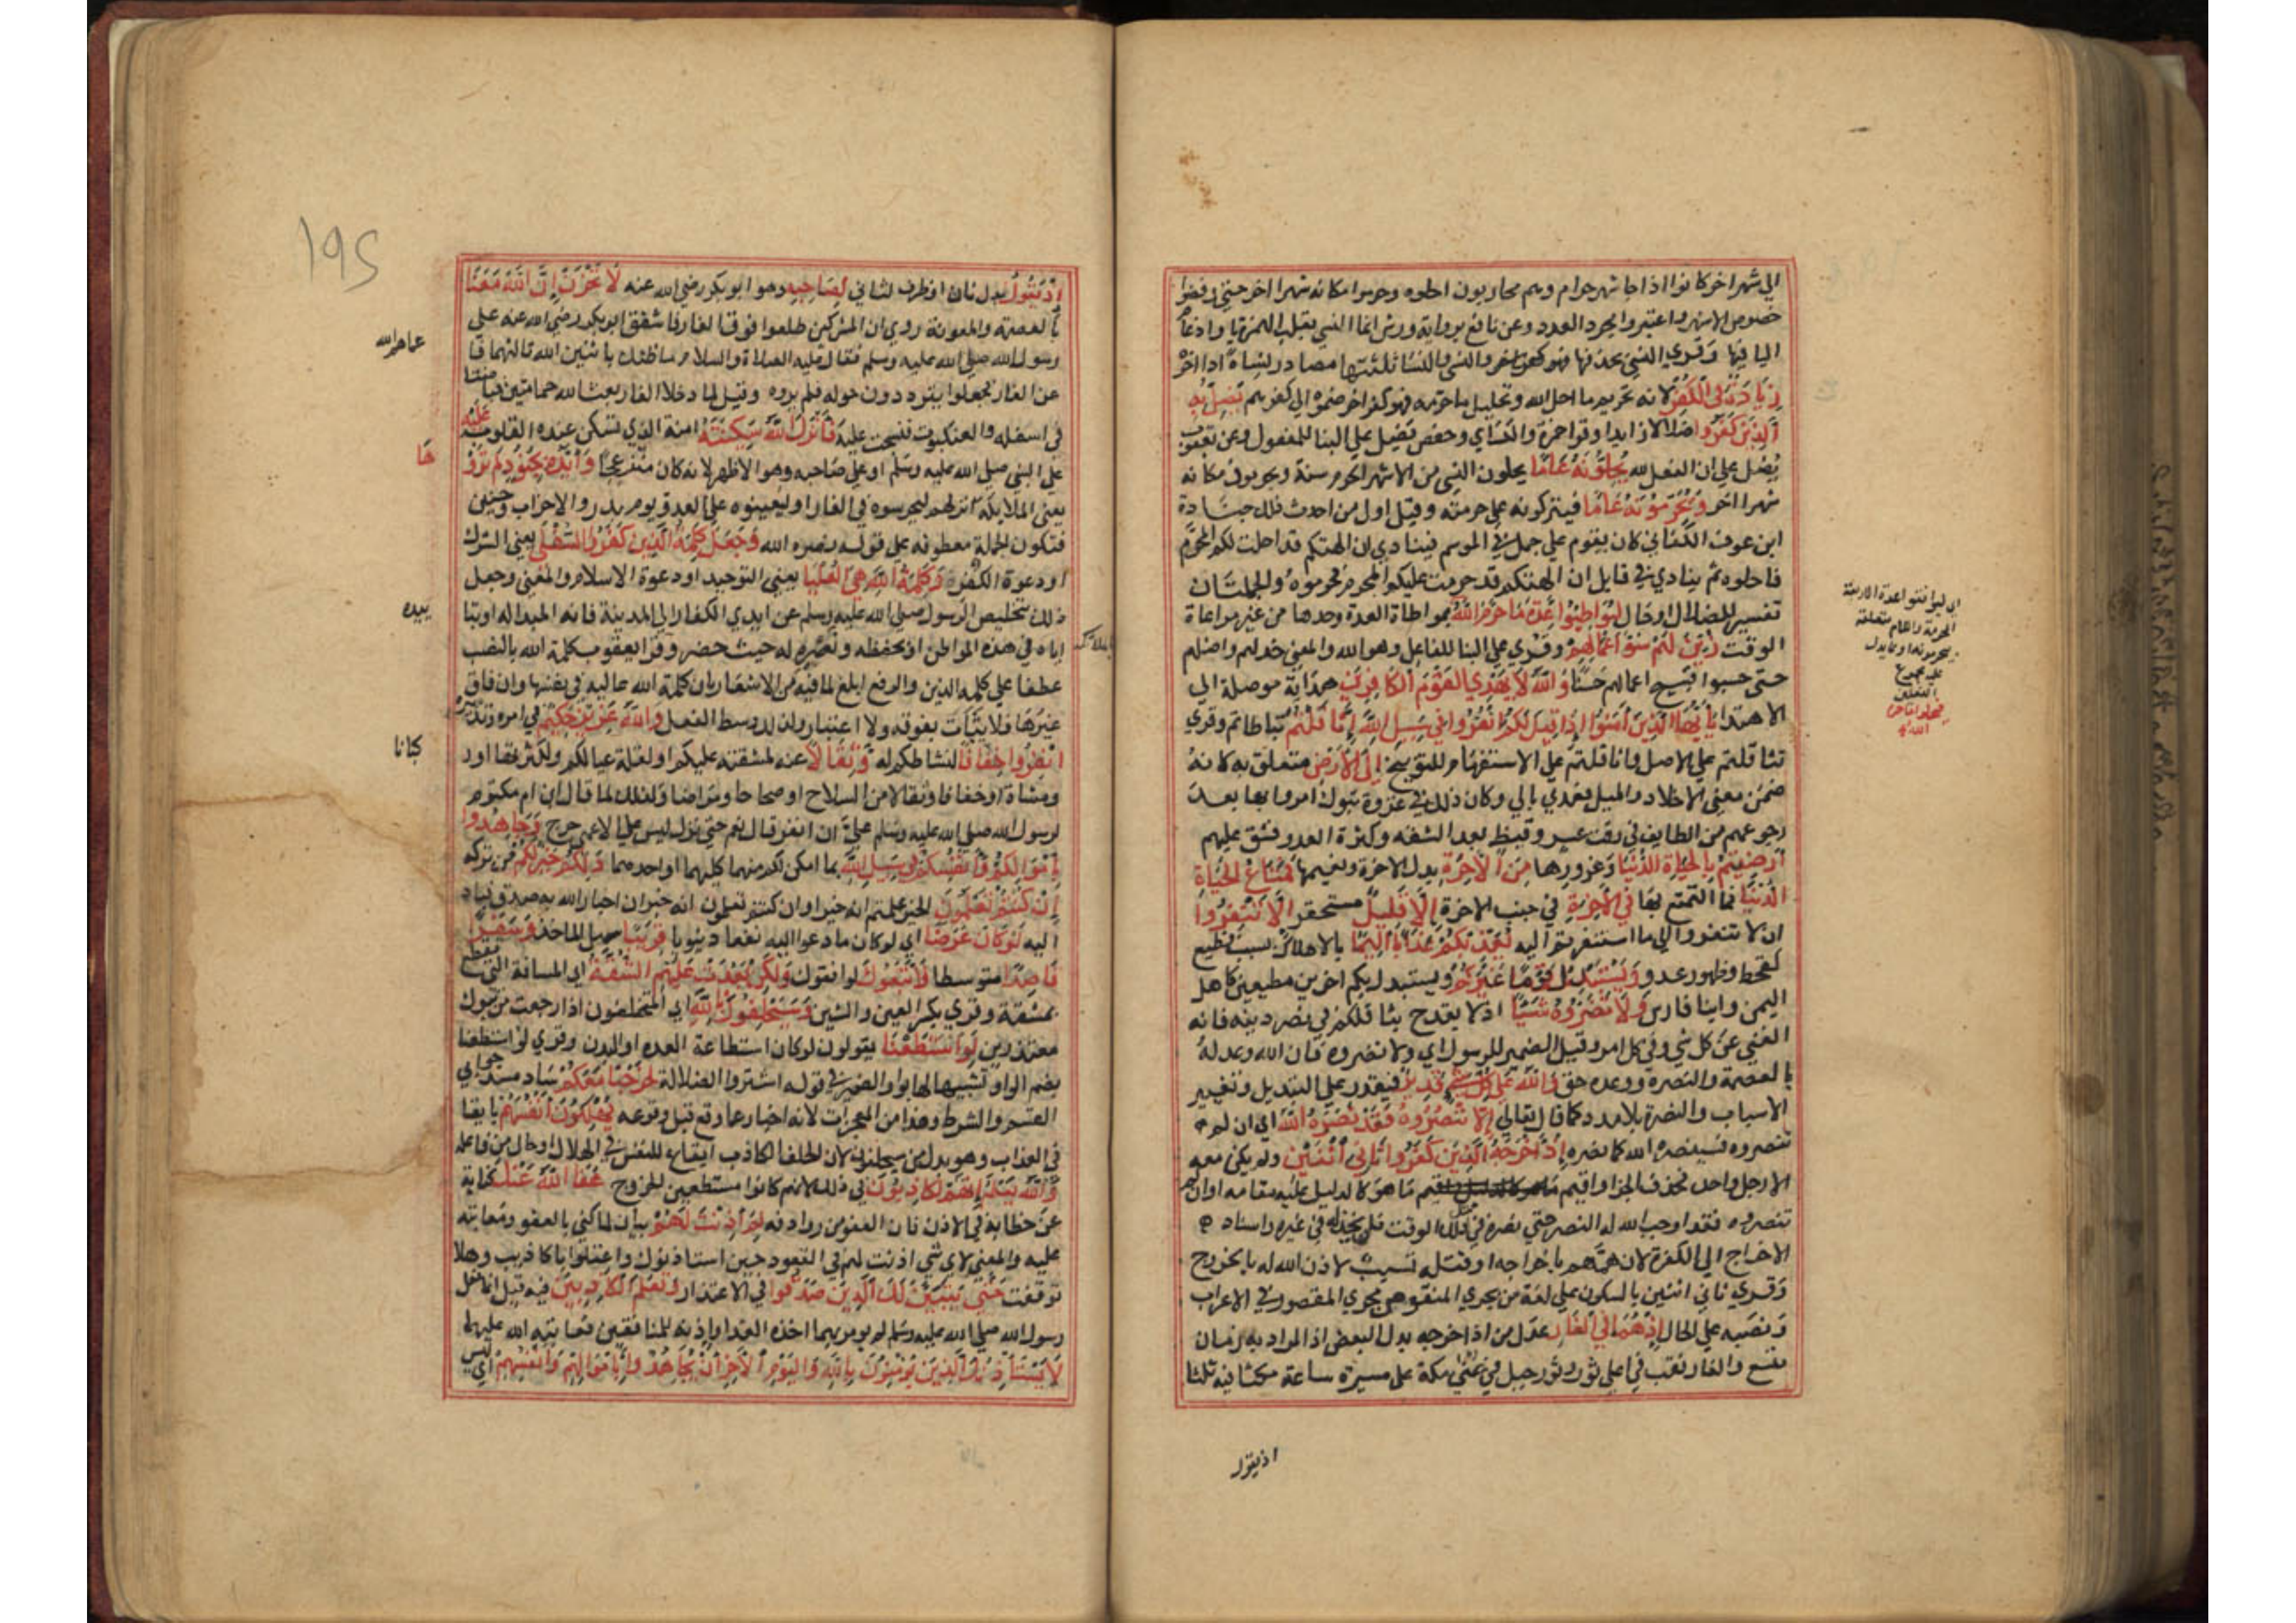 الي شهر اخر كانوا اذا جا شهر حرام وهم محاربون احلوه وحرموا مكانه شهرا اخر حتي رفضوا
خصوص الاشهر واعتبروا مجرد العدد وعن نافع برواية ورش انما النسي بقلب الهمزة يا وادغام
اليا فيها وقري النسي بحذفها والنسي والنسا وثلثتها مصادر نساه اذا اخره
زيادة في الكفر لانه تحريم ما احل الله وتحليل ما حرمه فهو كفر اخر ضموه الي كفرهم يضل به
الذين كفروا ضلالا زايدا وقرا حمزة والكساي وحفص يضل علي البنا للمفعول وعن يعقوب
يضل علي ان الفعل لله يحلونه عاما يحلون النسي من الاشهر الحرم سنة ويحرمون مكانه
شهرا اخر ويحرمونه عاما فيتركونه علي حرمته وقيل اول من احدث ذلك جنادة
ابن عوف الكناني كان يقوم علي جمل في الموسم فينادي ان الهتكم قد احلت لكم المحرم
فاحلوه ثم ينادي في قابل ان الهتكم قد حرمت عليكم المحرم فحرموه والجملتان
تفسير للضلال او حال ليواطيوا عدة ما حرم الله بمواطاة العدة وحدها من غير مراعاة
الوقت زين لهم سو اعمالهم وقري علي البنا للفاعل وهو الله والمعني خذلهم واضلهم
حتي حسبوا قبيح اعمالهم حسنا والله لا يهدي القوم الكافرين هداية موصلة الي
الاهتدا يا ايها الذين آمنوا ما لكم اذا قيل لكم انفروا في سبيل الله اثاقلتم تباطاتم وقري
تثاقلتم علي الاصل واثاقلتم علي الاستفهام للتوبيخ الي الارض متعلق به كانه
ضمن معني الاخلاد والميل فعدي بالي وكان ذلك في غزوة تبوك امروا بها بعد
رجوعهم من الطايف في وقت عسر وقيظ بعد الشقه وكثرة العدو فشق عليهم
ارضيتم بالحياة الدنيا وغرورها من الاخرة بدل الاخرة ونعيمها فما متاع الحياة
الدنيا فما التمتع بها في الاخرة في جنب الاخرة الا قليل مستحقر الا تنفروا
ان لا تنفروا الي ما استنفرتم اليه يعذبكم عذابا اليما بالاهلاك بسبب فظيع
كقحط وظهور عدو ويستبدل قوما غيركم ويستبدل بكم اخرين مطيعين كاهل
اليمن وابنا فارس ولا تضروه شيا اذ لا يقدح تثاقلكم في نصر دينه فانه
الغني عن كل شي وفي كل امر وقيل الضمير للرسول اي ولا تضروه فان الله وعد له
بالعصمة والنصره ووعده حق والله علي كل شي قدير فيقدر علي التبديل وتغيير
الاسباب والنصرة بلا مدد كما قال تعالي الا تنصروه فقد نصره الله اي ان لم
تنصروه فسينصره الله كما نصره اذ اخرجه الذين كفروا ثاني اثنين ولم يكن معه
الا رجل واحد فحذف الجزا واقيم ما هو كالدليل عليه مقامه او ان لم
تنصروه فقد اوجب الله له النصر حتي نصره في مثل ذلك الوقت فلن يخذله في غيره واسناد
الاخراج الي الكفرة لان همهم باخراجه او قتله تسبب لاذن الله له بالخروج
وقري ثاني اثنين بالسكون علي لغة من يجري المنقوص مجري المقصور في الاعراب
ونصبه علي الحال اذ هما في الغار بدل من اذ اخرجه بدل البعض اذ المراد به زمان
متسع والغار نقب في اعلي ثور وثور جبل في يمني مكة علي مسيرة ساعة مكثا فيه ثلثا
اذ يقول
اي ليوافقوا عدة الاربعة
المحرمة واللام متعلقة
بيحرمونه او بما دل
عليه مجموع
الفعلين
فيحلوا ما حرم
الله
١٩٥
اذ يقول بدل ثان او ظرف لثاني لصاحبه وهو ابو بكر رضي الله عنه لا تحزن ان الله معنا
بالعصمة والمعونة روي ان المشركين طلعوا فوق الغار فاشفق ابو بكر رضي الله عنه علي
رسول الله صلي الله عليه وسلم فقال عليه الصلاة والسلام ما ظنك باثنين الله ثالثهما فا
عن الغار فجعلوا يترددون حوله فلم يروه وقيل لما دخلا الغار بعث الله حمامتين فباضتا
في اسفله والعنكبوت فنسجت عليه فانزل الله سكينته امنة الذي تسكن عنده القلوب عليه
علي النبي صلي الله عليه وسلم او علي صاحبه وهو الاظهر لانه كان منزعجا وايده بجنود لم تروها
يعني الملايكة انزلهم ليحرسوه في الغار او ليعينوه علي العدو يوم بدر والاحزاب وحنين
فتكون الجملة معطوفه علي قوله نصره الله وجعل كلمة الذين كفروا السفلي يعني الشرك
او دعوة الكفر وكلمة الله هي العليا يعني التوحيد او دعوة الاسلام والمعني وجعل
ذلك بتخليص الرسول صلي الله عليه وسلم عن ايدي الكفار الي المدينة فانه المبدا له او بتاييده
اياه في هذه المواطن او بحفظه ونصره له حيث حضر وقرا يعقوب كلمة الله بالنصب
عطفا علي كلمة الذين والرفع ابلغ لما فيه من الاشعار بان كلمة الله عالية في نفسها وان فاق
غيرها فلا ثبات بفوقه ولا اعتبار ولذلك وسط الفصل والله عزيز حكيم في امره وتدبيره
انفروا خفافا لنشاطكم له وثقالا عنه لمشقته عليكم او لقلة عيالكم ولكثرتها او ركبانا
ومشاة او خفافا وثقالا من السلاح او صحاحا ومراضا ولذلك لما قال ابن ام مكتوم
لرسول الله صلي الله عليه وسلم علي ان انفر قال نعم حتي نزل ليس علي الاعمي حرج وجاهدوا
باموالكم وانفسكم في سبيل الله بما امكن لكم منهما كليهما او احدهما ذلكم خير لكم من تركه
ان كنتم تعلمون الخير علمتم انه خير او ان كنتم تعلمون انه خير اذ اخبار الله به صدق فبادروا
اليه لو كان عرضا اي لو كان ما دعوا اليه نفعا دنيويا قريبا سهل الماخذ وسفرا
قاصدا متوسطا لاتبعوك لوافقوك ولكن بعدت عليهم الشقة اي المسافة التي تقطع
بمشقة وقري بكسر العين والشين وسيحلفون بالله اي المتخلفون اذا رجعت من تبوك
معتذرين لو استطعنا يقولون لو كان استطاعة العدة او البدن وقري لو استطعنا
بضم الواو تشبيها لها بواو الضمير في قوله اشتروا الضلالة لخرجنا معكم ساد مسد جوابي
القسم والشرط وهذا من المعجزات لانه اخبار عما وقع قبل وقوعه يهلكون انفسهم بايقاعها
في العذاب وهو بدل من سيحلفون لان الحلف الكاذب ايقاع للنفس في الهلاك او حال من فاعله
والله يعلم انهم لكاذبون في ذلك لانهم كانوا مستطعين الخروج عفا الله عنك كناية
عن خطايه في الاذن فان العفو من روادفه لم اذنت لهم بيان لما كني بالعفو ومعاتبة
عليه والمعني لاي شي اذنت لهم في القعود حين استاذنوك واعتلوا باكاذيب وهلا
توقفت حتي يتبين لك الذين صدقوا في الاعتذار وتعلم الكاذبين فيه قيل انما فعل
رسول الله صلي الله عليه وسلم لم يومر بهما اخذه الفدا واذنه للمنافقين فعاتبه الله عليهما
لا يستاذنك الذين يومنون بالله واليوم الاخر ان يجاهدوا باموالهم وانفسهم اي ليس
عماهم الله
ها
بيده
بالملائكة
كبانا